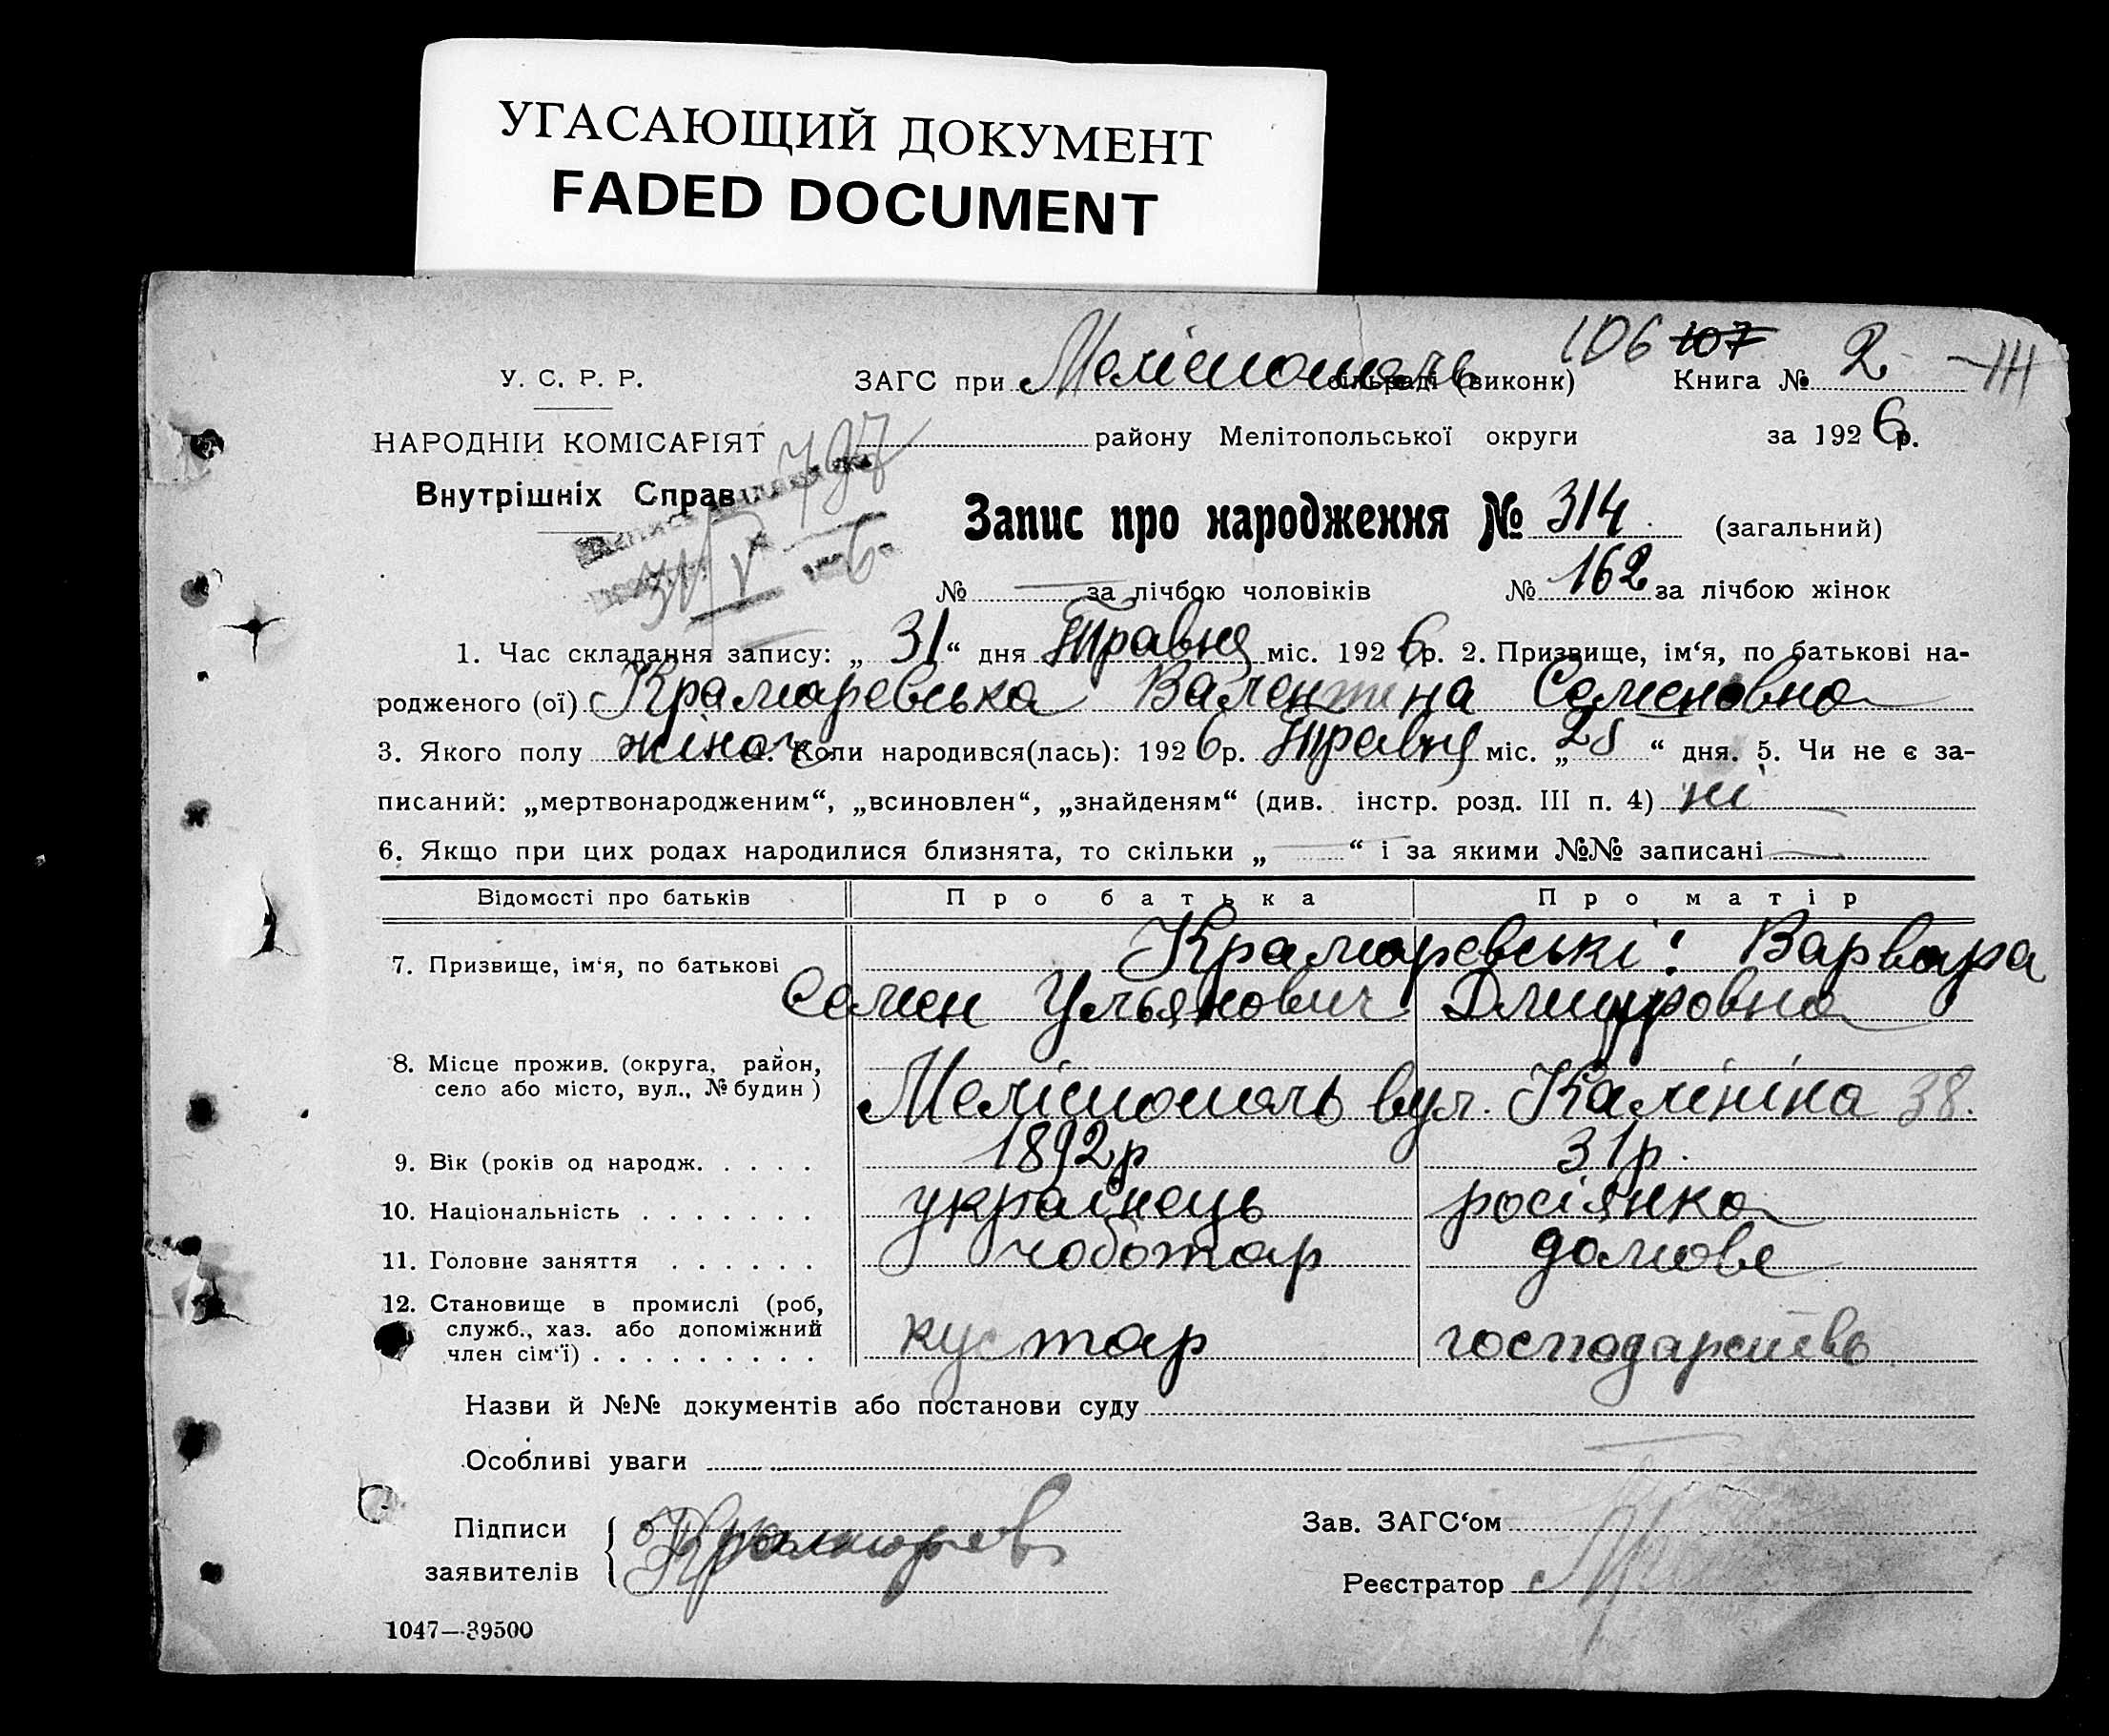 УГАСАЮЩИЙ ДОКУМЕНТ
FADED DOCUMENT
106 107
У. С. Р. Р.
ЗАГС при Мелітополь сільраді (виконк) Книга № 2
НАРОДНІЙ КОМІСАРІЯТ
797
району Мелітопольської округи за 1926 р.
Внутрішніх Справ
31/V 6.
Запис про народження № 314 (загальний)
№ — за лічбою чоловіків № 162 за лічбою жінок
1. Час складання запису: „ 31 “ дня Травня міс. 1926 р. 2. Призвище, ім‘я, по батькові на-
родженого (ої) Крамаревська Валентина Семеновна
3. Якого полу жіноч. 4. Коли народився(лась): 1926 р. Травня міс. „ 25 “ дня. 5. Чи не є за-
писаний: „мертвонародженим“, „всиновлен“, „знайденям“ (див. інстр. розд. III п. 4) ні
6. Якщо при цих родах народилися близнята, то скільки „ — “ і за якими №№ записані —
Відомості про батьків Про батька Про матір
7. Призвище, ім‘я, по батькові Крамаревські: Варвара
Семен Ульянович Дмитровна
8. Місце прожив. (округа, район,
село або місто, вул., № будин) Мелітополь вул. Калініна 38.
9. Вік (років од народж. . . . . 1892р 31р.
10. Національність . . . . . . . українець росіянка
11. Головне заняття . . . . . . чоботар домове
12. Становище в промислі (роб,
служб., хаз. або допоміжний
член сім‘ї) . . . . . . . . . кустар господарство
Назви й №№ документів або постанови суду
Особливі уваги
Підписи
заявителів
Крамарев
Зав. ЗАГС‘ом
Реєстратор
1047—39500